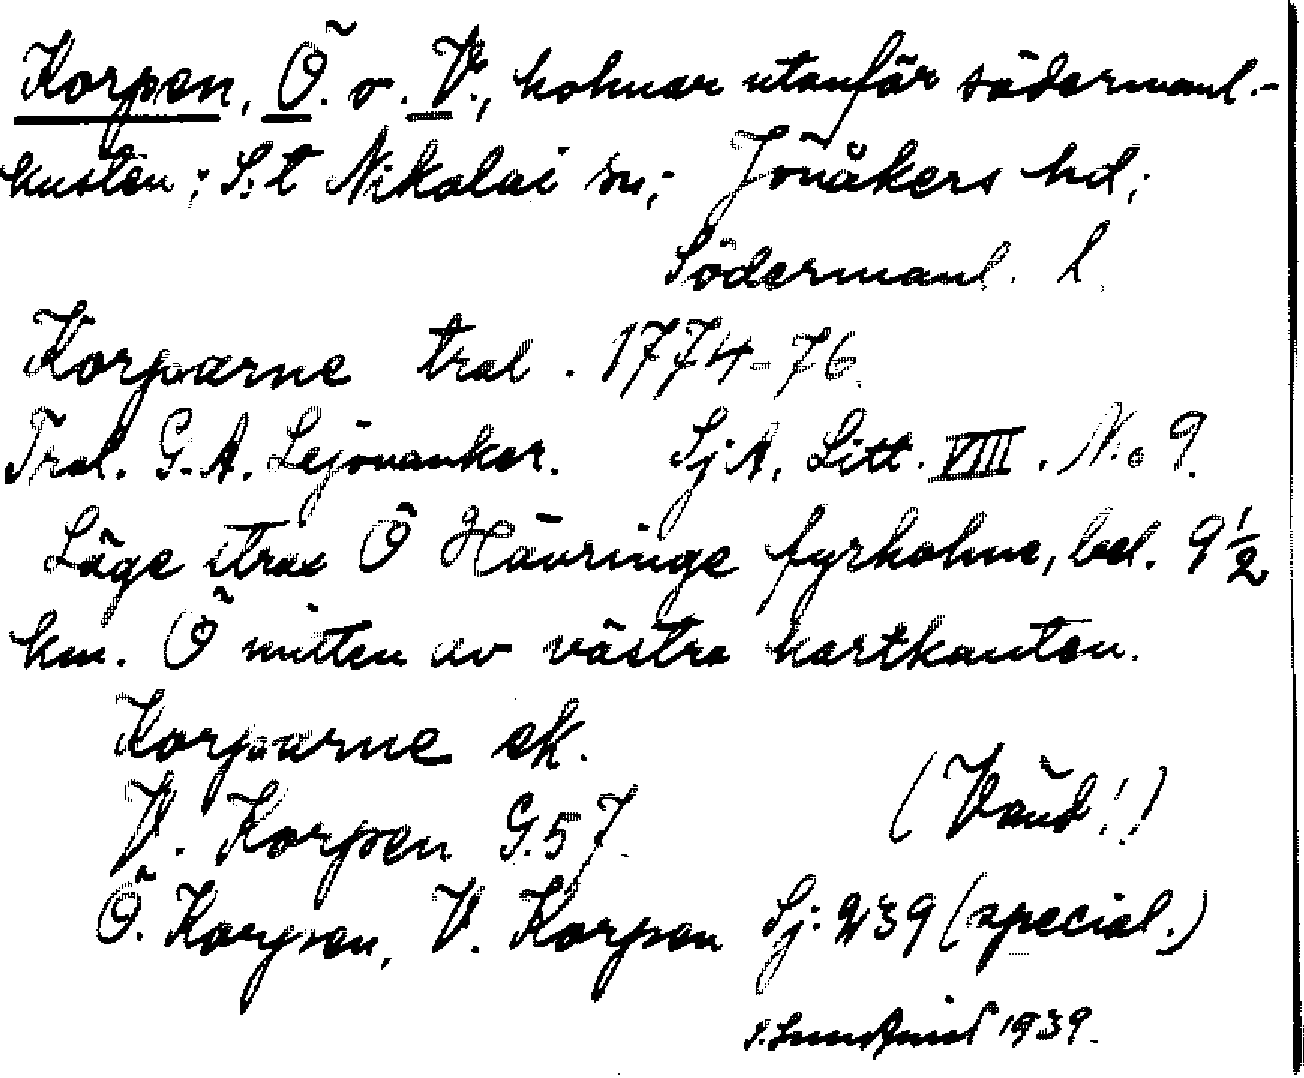 Korpen, Ö. o. V., holmar utanför södermanl.-
kusten; S:t Nikolai sn; Jönåkers hd;
Södermanl. l.
Korparne tral. 1774-76.
Tral. G. A. Lejonanker. Sj. A. Litt. VIII. No 9.
Läge strax Ö Hävringe fyrholme, bel. 9 1/2
km. Ö mitten av västra kartkanten.
Korparne ek.
V. Korpen G.57. (Vänd!)
Ö. Korpen, V. Korpen Sj: 239 (special.)
1939.